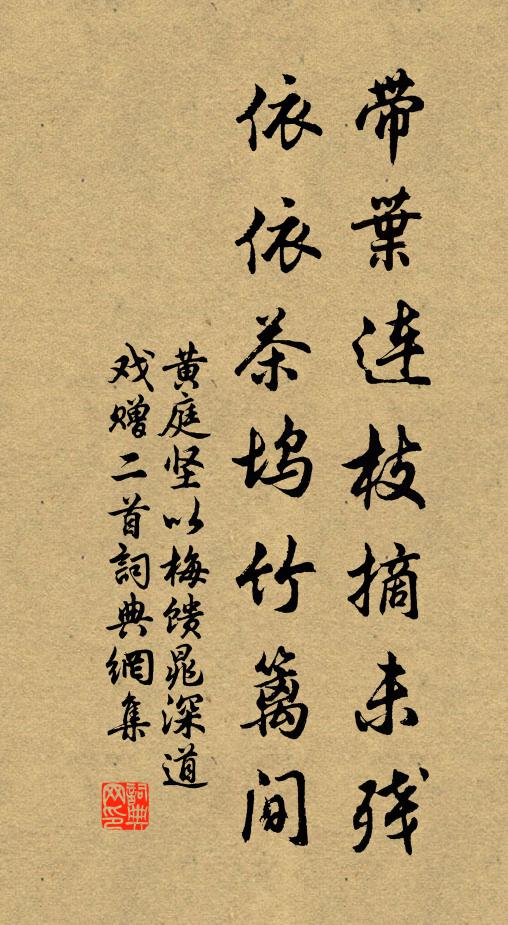 带葉连枝摘未残
依依茶坞竹篱间
黄庭坚以梅馈晁深道
戏赠二首詞典網集
詞典网印